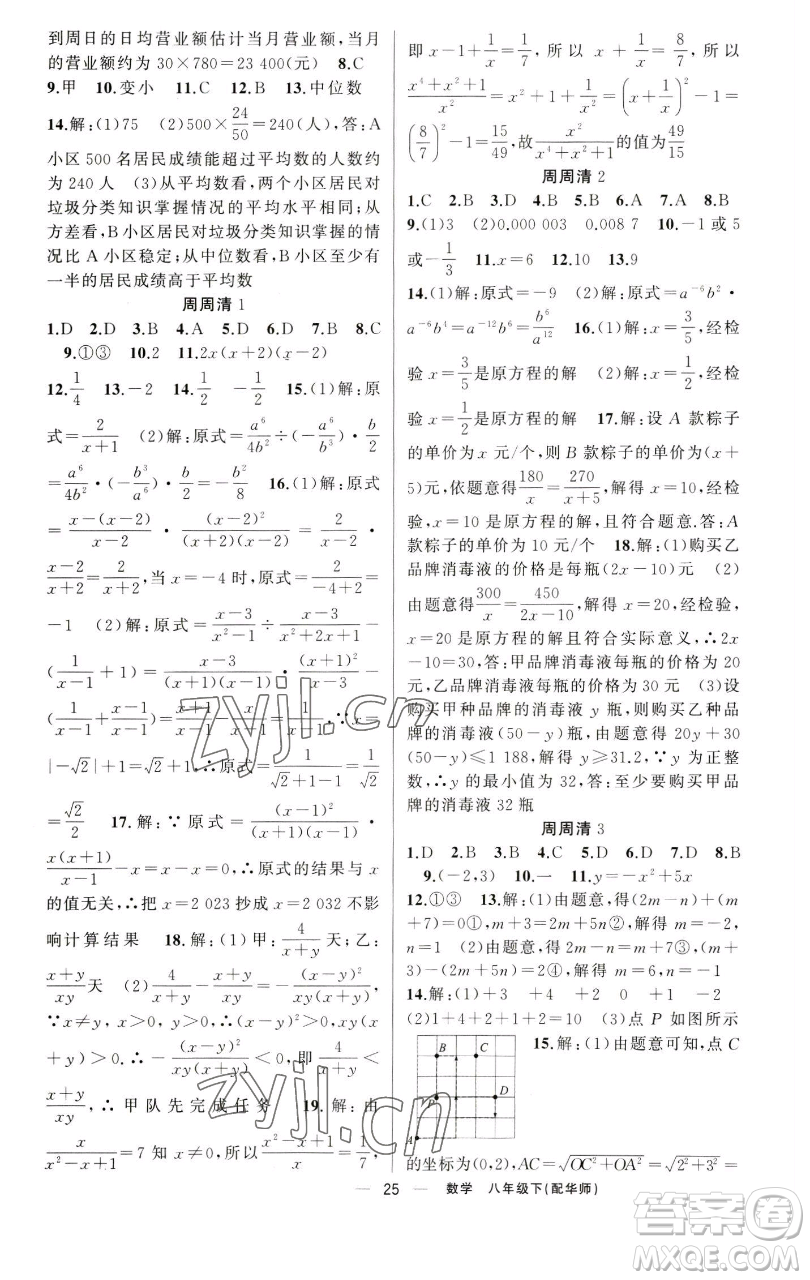 到周日的日均营业额估计当月营业额,当月
的营业额约为 30×780=23 400(元) 8.C
9.甲 10.变小 11.C 12.B 13.中位数
14.解:(1)75 (2)500×24/50=240(人),答:A
小区 500 名居民成绩能超过平均数的人数约
为 240 人 (3)从平均数看,两个小区居民对
垃圾分类知识掌握情况的平均水平相同;从
方差看,B 小区居民对垃圾分类知识掌握的情
况比 A 小区稳定;从中位数看,B 小区至少有
一半的居民成绩高于平均数
周周清 1
1.D 2.D 3.B 4.A 5.D 6.D 7.B 8.C
9.①③ 10.2 11.2x(x+2)(x-2)
12.1/4 13.-2 14.1/2 -1/2 15.(1)解:原
式=2/(x+1) (2)解:原式=a⁶/4b²÷(-a⁶/b³)·b/2
=a⁶/4b²·(-b³/a⁶)·b/2=-b²/8 16.(1)解:原式
=(x-(x-2))/(x-2)·(x-2)²/((x+2)(x-2))=2/(x-2)·
(x-2)/(x+2)=2/(x+2),当 x=-4 时,原式=2/(-4+2)=
-1 (2)解:原式=(x-3)/(x²-1)÷(x-3)/(x²+2x+1)-
(1/(x-1)+1)=(x-3)/((x+1)(x-1))·(x+1)²/(x-3)-
(1/(x-1)+(x-1)/(x-1))=(x+1)/(x-1)-x/(x-1)=1/(x-1),∵x=
|-√2|+1=√2+1,∴原式=1/(√2+1-1)=
√2/2 17.解:∵原式=(x-1)²/((x+1)(x-1))·
x(x+1)/(x-1)-x=x-x=0,∴原式的结果与 x
的值无关,∴把 x=2 023 抄成 x=2 032 不影
响计算结果 18.解:(1)甲:4/(x+y)天;乙:
(x+y)/xy天 (2)4/(x+y)-(x+y)/xy=-(x-y)²/(xy(x+y)),
∵x≠y,x>0,y>0,∴(x-y)²>0,xy(x
+y)>0,∴-(x-y)²/(xy(x+y))<0,即4/(x+y)<
(x+y)/xy,∴甲队先完成任务 19.解:由
x/(x²-x+1)=7 知 x≠0,所以(x²-x+1)/x=1/7,
即 x-1+1/x=1/7,所以 x+1/x=8/7,所以
(x⁴+x²+1)/x²=x²+1+1/x²=(x+1/x)²-1=
(8/7)²-1=15/49,故x²/(x⁴+x²+1)的值为49/15
周周清 2
1.C 2.B 3.D 4.D 5.D 6.A 7.A 8.B
9.(1)3 (2)0.000 003 0.008 7 10.-1或5
或-1/3 11.x=6 12.10 13.9
14.(1)解:原式=-9 (2)解:原式=a⁻⁶b²·
a⁻⁶b⁴=a⁻¹²b⁶=b⁶/a¹² 16.(1)解:x=3/5,经检
验 x=3/5是原方程的解 (2)解:x=1/2,经检
验 x=1/2是原方程的解 17.解:设 A 款粽子
的单价为 x 元/个,则 B 款粽子的单价为(x+
5)元,依题意得180/x=270/(x+5),解得 x=10,经检
验,x=10 是原方程的解,且符合题意.答:A
款粽子的单价为 10 元/个 18.解:(1)购买乙
品牌消毒液的价格是每瓶(2x-10)元 (2)
由题意得300/x=450/(2x-10),解得 x=20,经检验,
x=20 是原方程的解且符合实际意义,∴2x
-10=30,答:甲品牌消毒液每瓶的价格为 20
元,乙品牌消毒液每瓶的价格为 30 元 (3)设
购买甲种品牌的消毒液 y 瓶,则购买乙种品
牌的消毒液(50-y)瓶,由题意得 20y+30
(50-y)≤1 188,解得 y≥31.2,∵y 为正整
数,∴y 的最小值为 32,答:至少要购买甲品
牌的消毒液 32 瓶
周周清 3
1.D 2.B 3.B 4.C 5.D 6.D 7.D 8.B
9.(-2,3) 10.一 11.y=-x²+5x
12.①③ 13.解:(1)由题意,得(2m-n)+(m
+7)=0①,m+3=2m+5n②,解得 m=-2,
n=1 (2)由题意,得2m-n=m+7③,(m
+3)+(2m+5n)=2④,解得 m=6,n=-1
14.解:(1)+3 +4 +2 0 -1 -2
(2)1+4+2+1+2=10 (3)点 P 如图所示
B C
P D
A
15.解:(1)由题意可知,点 C
的坐标为(0,2),AC=√(OC²+OA²)=√(2²+3²)=
— 25 — 数学 八年级下(配华师)
zyjl.cn
zyjl.cn
答案圈
MXQE.COM